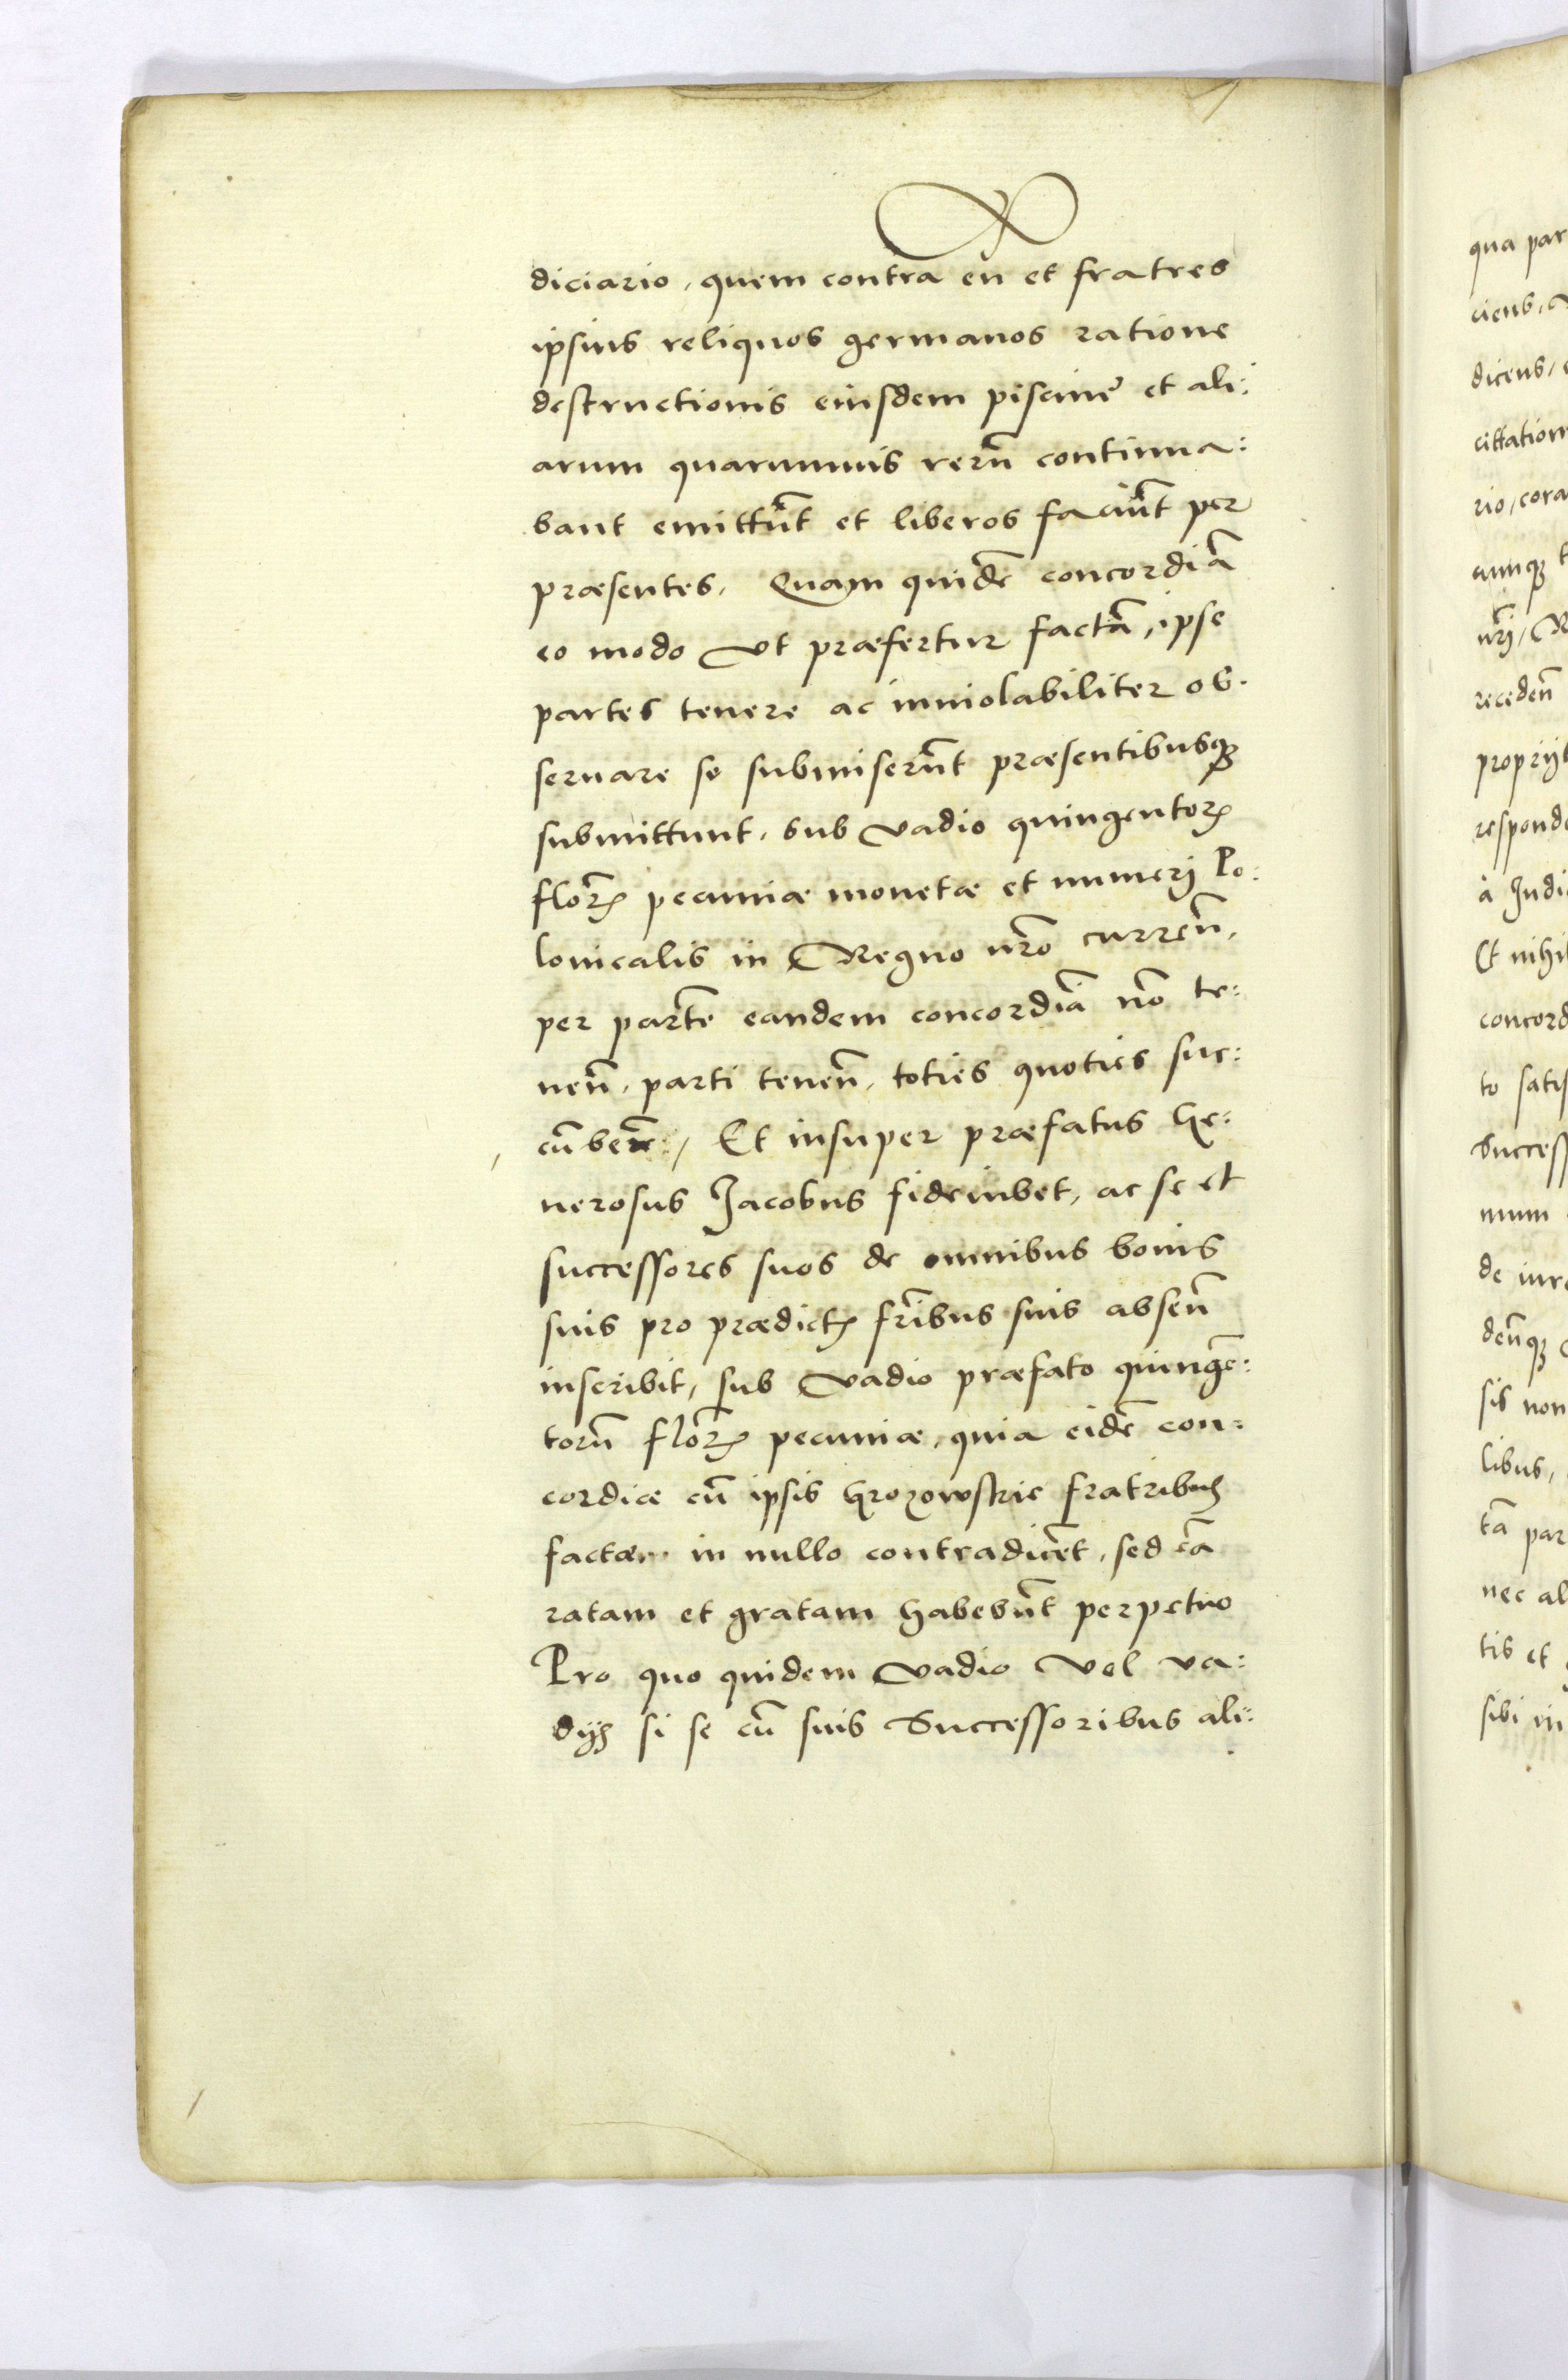 diciario, quem contra eu et fratres
ipsius reliquos germanos ratione
destructionis eiusdem piscine et ali:
arum quarumuis rerū continua:
bant emittūt et liberos faciūt per
præsentes. Quam quidē concordiā
eo modo vt præfertur factā, ipse
partes tenere ac inuiolabiliter ob-
seruare se submiserūt præsentibusqꝫ
submittunt, sub vadio quingentorꝫ
florꝫ pecuniæ monetæ et numerj Po:
lonicalis in Regno nr̃o curreñ,
per partē eandem concordiā nō te:
neñ, parti teneñ, toties quoties suc:
cūben:, Et insuper præfatus Ge:
nerosus Jacobus fideiubet, ac se et
successores suos de omnibus bonis
suis pro prædictꝫ fr̃ibus suis abseñ
inscribit, sub vadio præfato quingē:
torū florꝫ pecuniæ, quia eidē con:
cordiæ cū ipsis Grozowskie fratribus
factæ in nullo contradicēt, sed eā
ratam et gratam habebūt perpetuo
Pro quo quidem vadio vel va:
dijs si se cū suis Successoribus ali:
qua par
ciens,
dicens,
cittation
rio, cora
cumqꝫ
nr̃i, R
recedeñ
proprijs
respond
à Judi
Et nihi
concord
to satis
Success
mum
de iure
deñqꝫ
sis non
libus,
tā par
nec al
tis et
sibi in